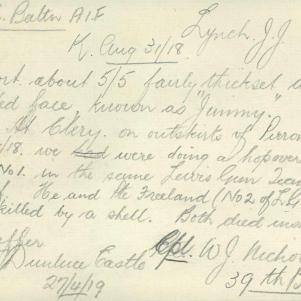 Battn A.I.F.
Lynch. J.J
K. Aug 31/18.
about 5/5 fairly thickset
face, known as "Jimmy".
At Clery. on outskirts of
/18. we were doing a hopover
No 1. in the same Lewis Gun Team
He and Freeland (No 2 of L.G
killed by a shell. Both died
Dunluce Castle
Cpl. W.J.
27/4/19
39th